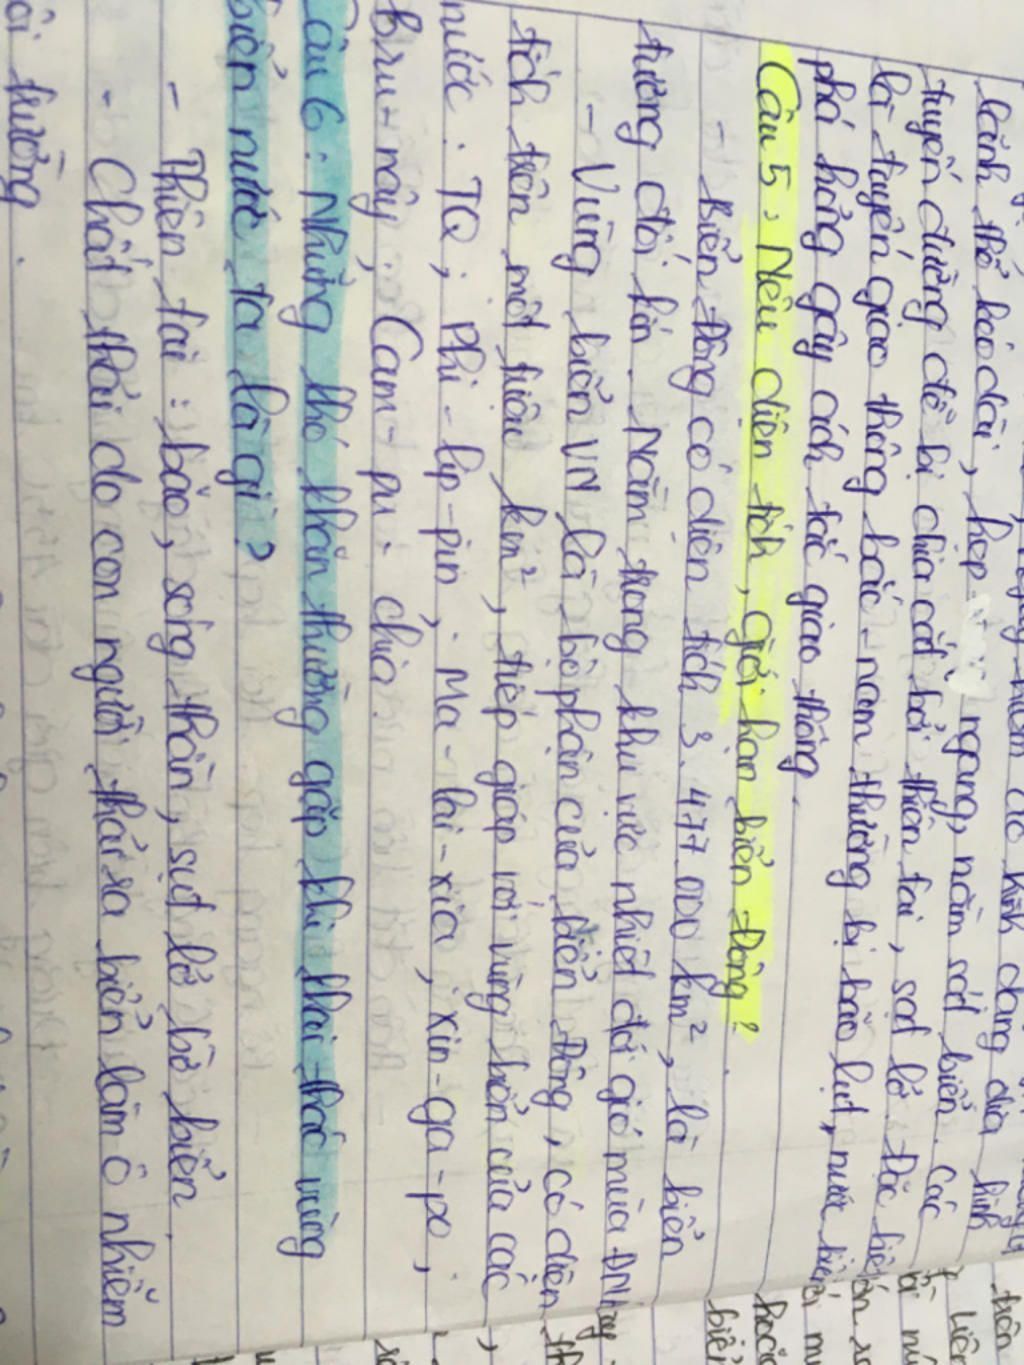 hình dạng địa hình
lãnh thổ kéo dài, hẹp ngang, nằm sát biển. Các
tuyến đường dễ bị chia cắt bởi thiên tai, sạt lở. Đặc biệt
là tuyến giao thông bắc - nam thường bị bão lụt, nước biển
phá hỏng gây ách tắc giao thông.
Câu 5: Nêu diện tích, giới hạn biển Đông?
- Biển Đông có diện tích 3.477.000 km², là biển
tương đối kín. Nằm trong khu vực nhiệt đới gió mùa ĐNÁ
- Vùng biển VN là bộ phận của biển Đông, có diện
tích trên một triệu km², tiếp giáp với vùng biển của các
nước: TQ; Phi-líp-pin; Ma-lai-xia; Xin-ga-po;
Bru-nây; Cam-pu-chia.
Câu 6: Những khó khăn thường gặp khi khai thác vùng
biển nước ta là gì?
- Thiên tai: bão, sóng thần, sụt lở bờ biển
- Chất thải do con người thải ra biển làm ô nhiễm
môi trường.